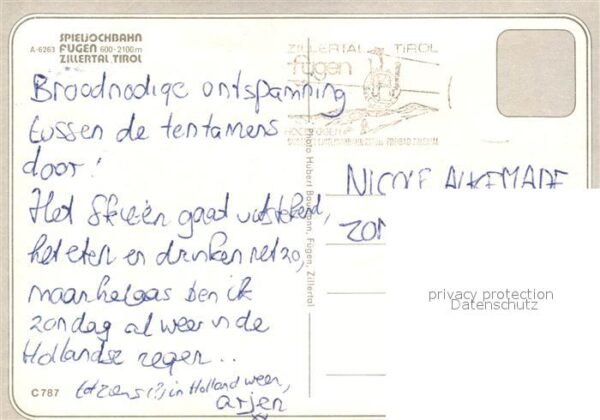 SPIELJOCHBAHN
A-6263 FÜGEN 600-2100m
ZILLERTAL TIROL
ZILLERTAL TIROL
fügen
HOCHFÜGEN
Broodnodige ontspanning
tussen de tentamens
door!
Het Skieën gaat uitstekend,
het eten en drinken net zo,
maar helaas ben ik
zondag al weer in de
Hollandse regen..
tot ziens (?) in Holland weer,
arjen
C787
Photo Hubert Baumann, Fügen, Zillertal
NICOLE ALKEMADE
ZON
privacy protection
Datenschutz